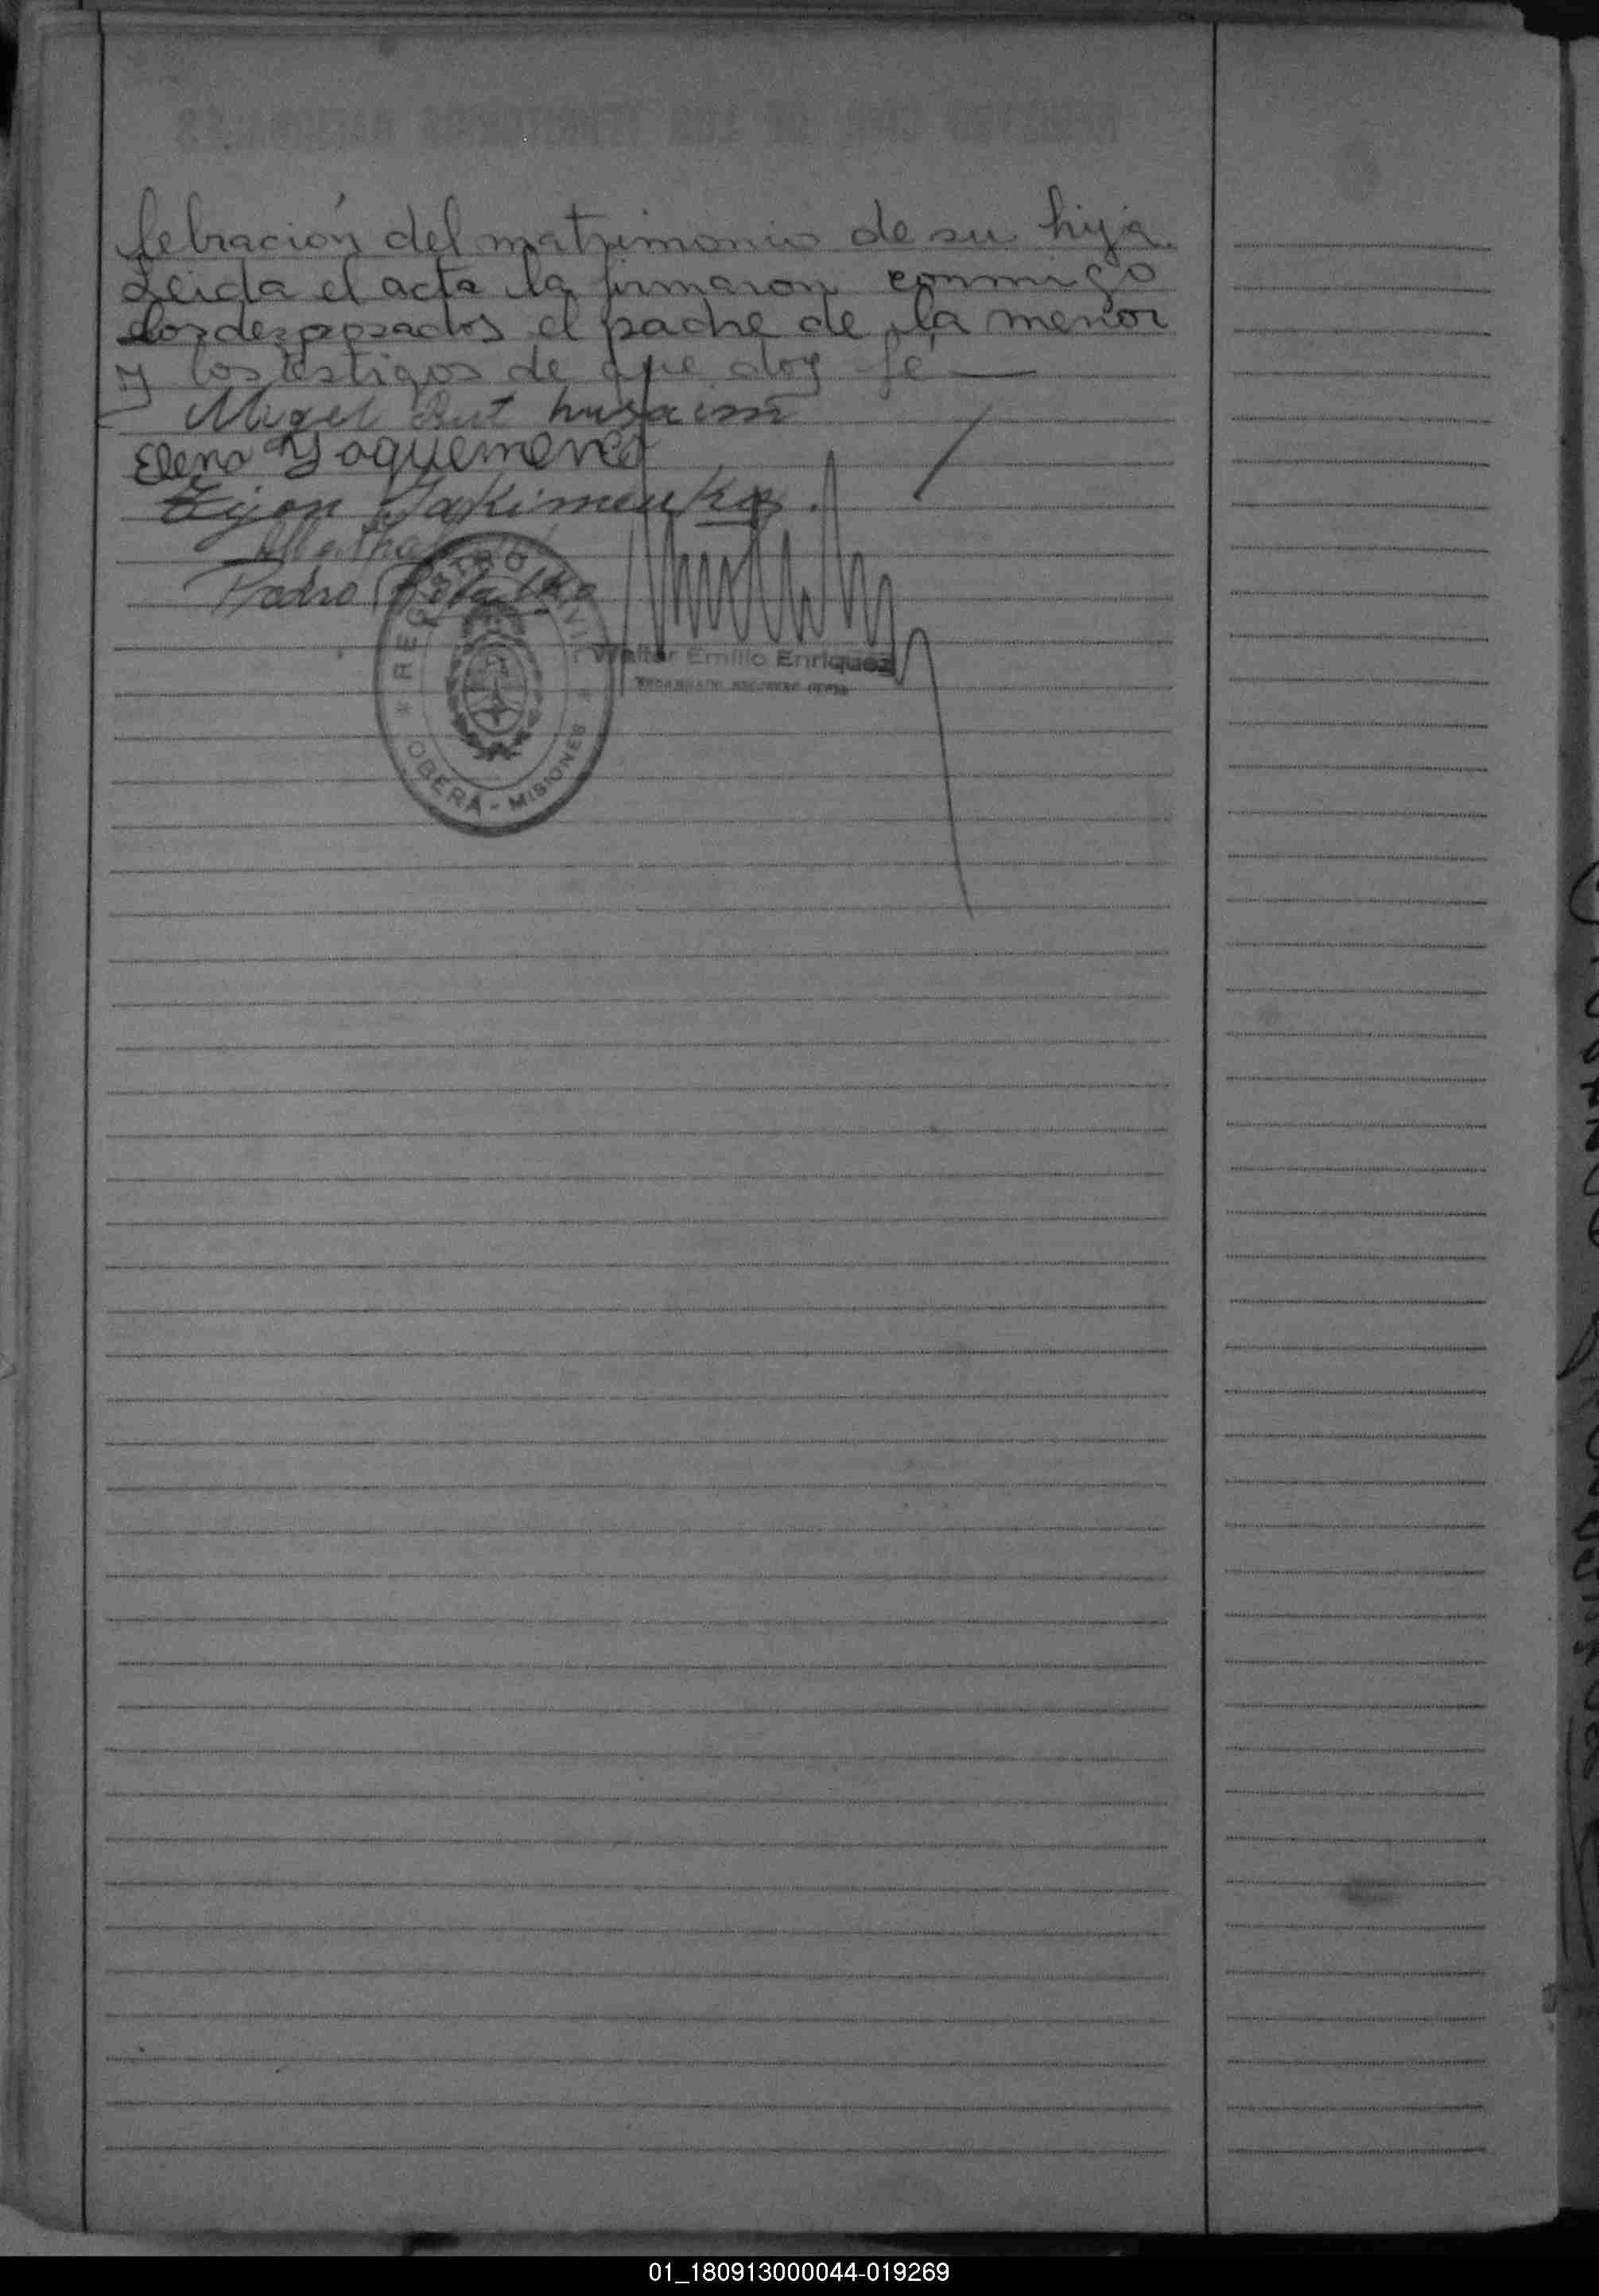 lebración del matrimonio de su hija.
Leida el acta la firmaron conmigo
los desposados el padre de la menor
y los testigos de que doy fé
Migel husaim
Elena Yaquemenco
Jakimenko.
Pedro
REGISTRO CIVIL
Walter Emilio Enriquez
OBERÁ - MISIONES
01_180913000044-019269